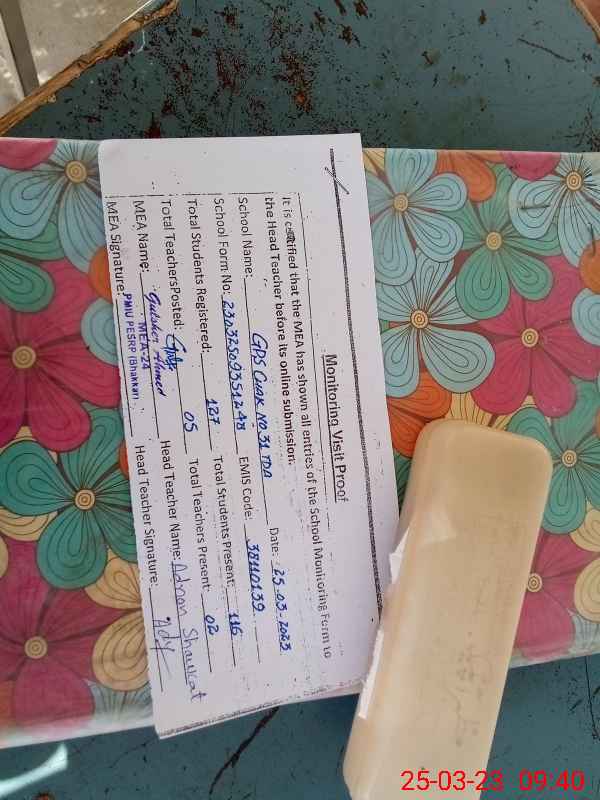 Monitoring Visit Proof
It is certified that the MEA has shown all entries of the School Monitoring Form to
the Head Teacher before its online submission.
School Name: GPS Chak No.31 TDA Date: 25-03-2023
School Form No: EMIS Code: 38110139
Total Students Registered: 127 Total Students Present: 116
Total TeachersPosted: 05 Total Teachers Present: 02
MEA Name: Gulsher Ahmed Head Teacher Name: Adnan Shaukat
MEA-24
MEA Signature: Head Teacher Signature:
PMIU PESRP (Bhakkar)
25-03-23 09:40